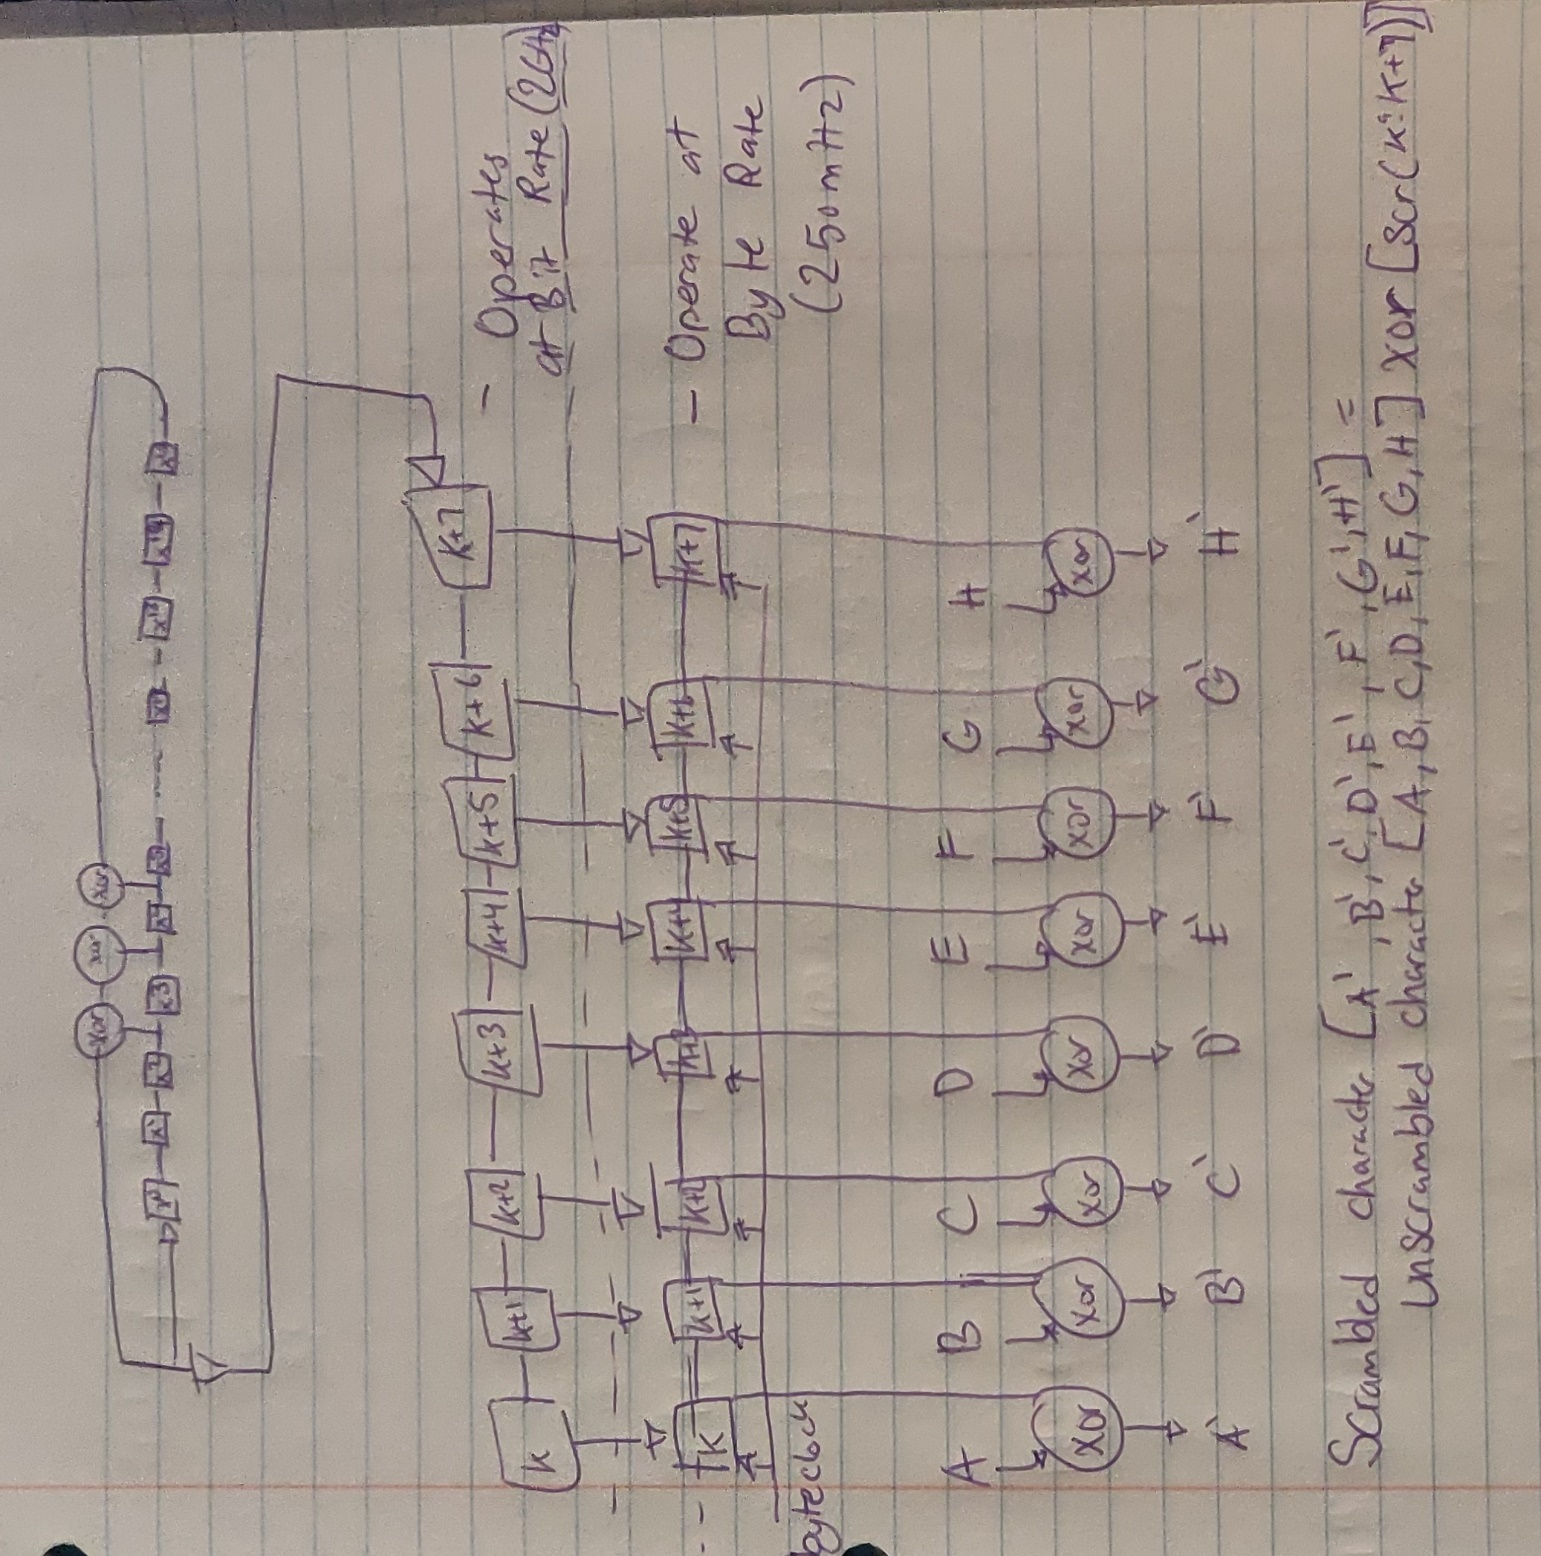 xor xor xor
x⁰ x¹ x² x³ x⁴ x⁵
k k+1 k+2 k+3 k+4 k+5 k+6 k+7
- Operates
at Bit Rate (2GHz
k k+1 k+2 k+4 k+5 k+6 k+7
- Operate at
Byte Rate
(250mHz)
byteclock
A B C D E F G H
xor xor xor xor xor xor xor xor
A' B' C' D' E' F' G' H'
Scrambled character [A', B', C', D', E', F', G', H'] =
unscrambled character [A, B, C, D, E, F, G, H] xor [scr(k:k+7)]